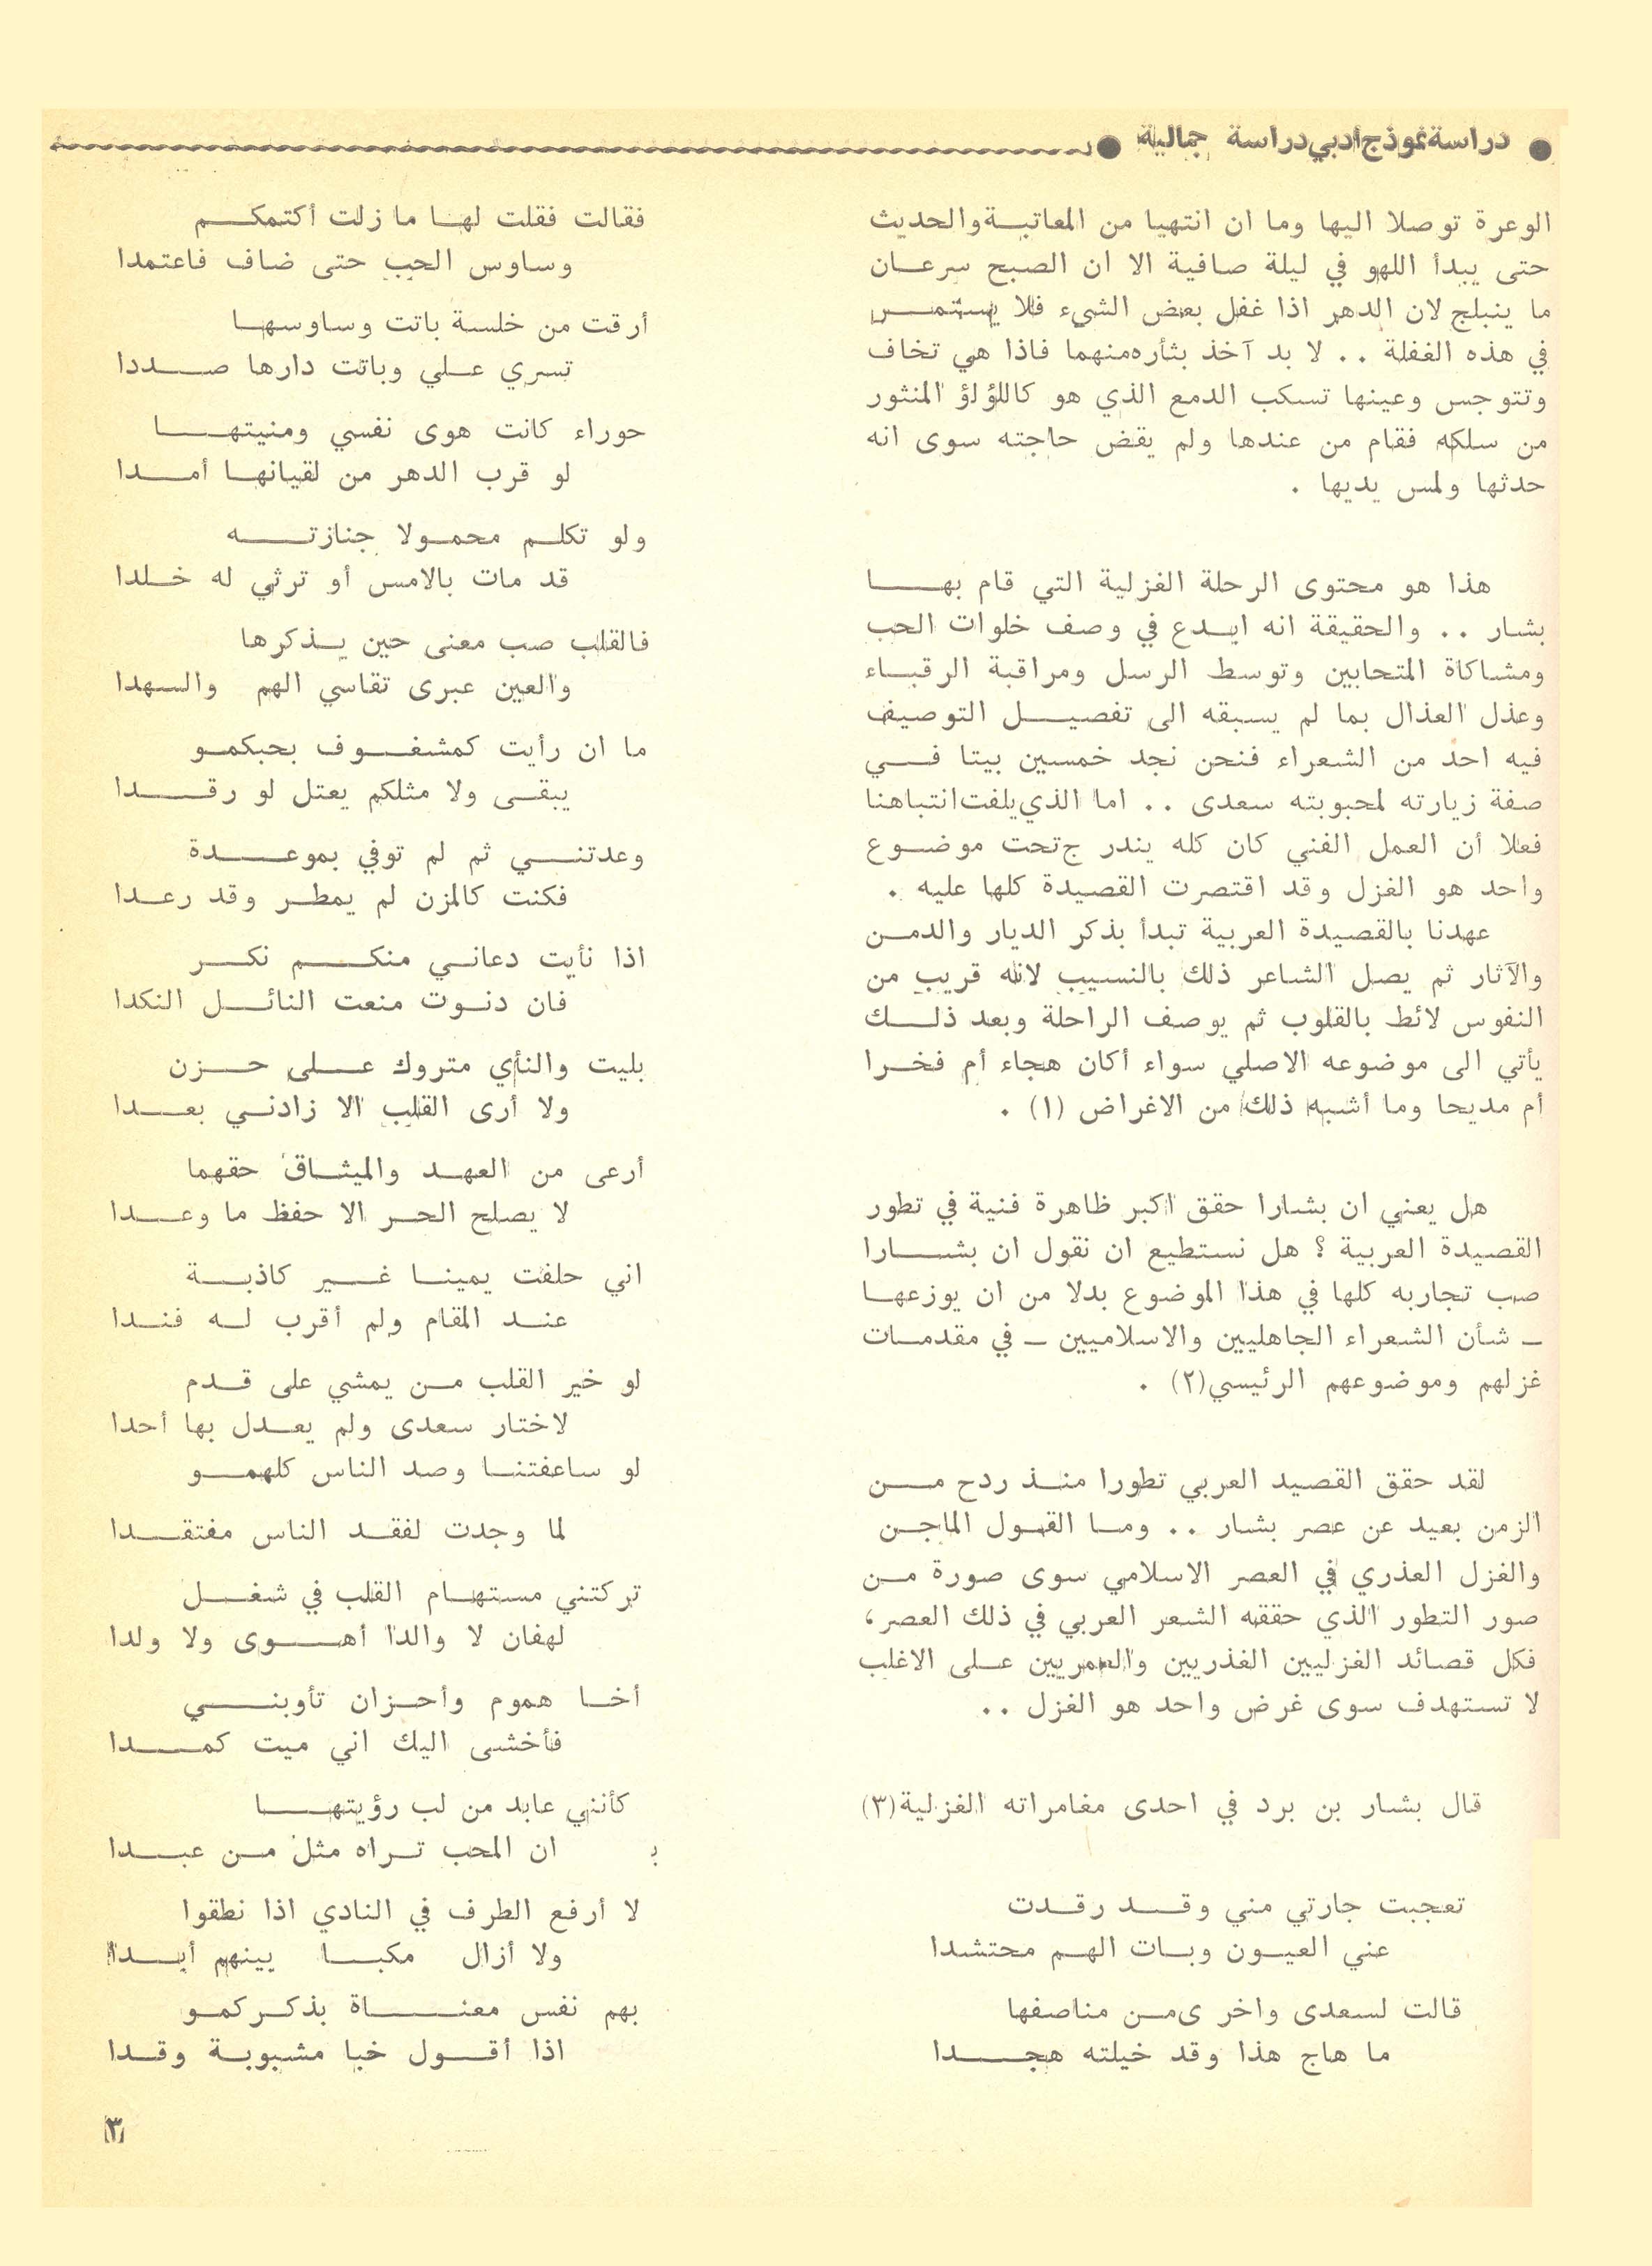 دراسة نموذج أدبي دراسة جمالية
الوعرة توصلا اليها وما ان انتهيا من المعاتبة والحديث
حتى يبدأ اللهو في ليلة صافية الا ان الصبح سرعان
ما ينبلج لان الدهر اذا غفل بعض الشيء فلا يستمر
في هذه الغفلة .. لا بد آخذ بثأره منهما فاذا هي تخاف
وتتوجس وعينها تسكب الدمع الذي هو كاللؤلؤ المنثور
من سلكه فقام من عندها ولم يقض حاجته سوى انه
حدثها ولمس يديها .
هذا هو محتوى الرحلة الغزلية التي قام بها
بشار .. والحقيقة انه ابدع في وصف خلوات الحب
ومشاكاة المتحابين وتوسط الرسل ومراقبة الرقباء
وعذل العذال بما لم يسبقه الى تفصيل التوصيف
فيه احد من الشعراء فنحن نجد خمسين بيتا في
صفة زيارته لمحبوبته سعدى .. اما الذي يلفت انتباهنا
فعلا أن العمل الفني كان كله يندرج تحت موضوع
واحد هو الغزل وقد اقتصرت القصيدة كلها عليه .
عهدنا بالقصيدة العربية تبدأ بذكر الديار والدمن
والآثار ثم يصل الشاعر ذلك بالنسيب لانه قريب من
النفوس لائط بالقلوب ثم يوصف الراحلة وبعد ذلك
يأتي الى موضوعه الاصلي سواء أكان هجاء أم فخرا
أم مديحا وما أشبه ذلك من الاغراض (١) .
هل يعني ان بشارا حقق اكبر ظاهرة فنية في تطور
القصيدة العربية ؟ هل نستطيع ان نقول ان بشارا
صب تجاربه كلها في هذا الموضوع بدلا من ان يوزعها
ـ شأن الشعراء الجاهليين والاسلاميين ـ في مقدمات
غزلهم وموضوعهم الرئيسي(٢) .
لقد حقق القصيد العربي تطورا منذ ردح من
الزمن بعيد عن عصر بشار .. وما القول الماجن
والغزل العذري في العصر الاسلامي سوى صورة من
صور التطور الذي حققه الشعر العربي في ذلك العصر،
فكل قصائد الغزليين الغذريين والعمريين على الاغلب
لا تستهدف سوى غرض واحد هو الغزل ..
قال بشار بن برد في احدى مغامراته الغزلية(٣)
تعجبت جارتي مني وقد رقدت
عني العيون وبات الهم محتشدا
قالت لسعدى واخرى من مناصفها
ما هاج هذا وقد خيلته هجدا
فقالت فقلت لها ما زلت أكتمكم
وساوس الحب حتى ضاف فاعتمدا
أرقت من خلسة باتت وساوسها
تسري علي وباتت دارها صددا
حوراء كانت هوى نفسي ومنيتها
لو قرب الدهر من لقيانها أمدا
ولو تكلم محمولا جنازته
قد مات بالامس أو ترثي له خلدا
فالقلب صب معنى حين يذكرها
والعين عبرى تقاسي الهم والسهدا
ما ان رأيت كمشغوف بحبكمو
يبقى ولا مثلكم يعتل لو رقدا
وعدتني ثم لم توفي بموعدة
فكنت كالمزن لم يمطر وقد رعدا
اذا نأيت دعاني منكم نكر
فان دنوت منعت النائل النكدا
بليت والنأي متروك على حزن
ولا أرى القلب الا زادني بعدا
أرعى من العهد والميثاق حقهما
لا يصلح الحر الا حفظ ما وعدا
اني حلفت يمينا غير كاذبة
عند المقام ولم أقرب له فندا
لو خير القلب من يمشي على قدم
لاختار سعدى ولم يعدل بها أحدا
لو ساعفتنا وصد الناس كلهمو
لما وجدت لفقد الناس مفتقدا
تركتني مستهام القلب في شغل
لهفان لا والدا أهوى ولا ولدا
أخا هموم وأحزان تأوبني
فأخشى اليك اني ميت كمدا
كأنني عابد من لب رؤيتها
ان المحب تراه مثل من عبدا
لا أرفع الطرف في النادي اذا نطقوا
ولا أزال مكبا بينهم أبدا
بهم نفس معناة بذكركمو
اذا أقول خبا مشبوبة وقدا